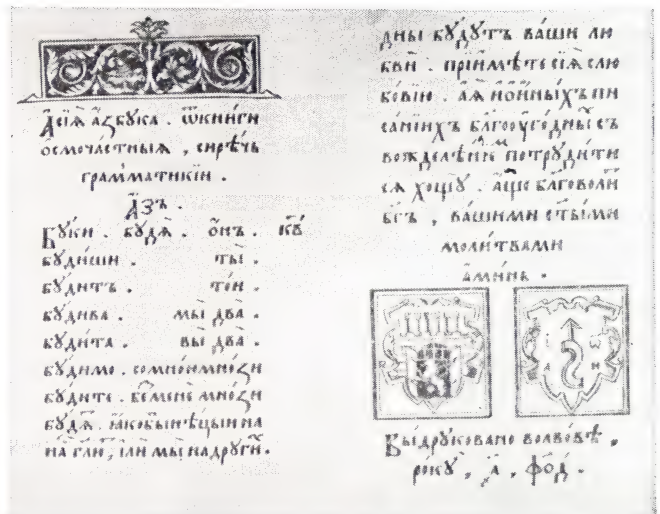 А҆ сїѧ̀ а҆́збꙋка . ѿкни́ги
ѻ҆смоча́стныѧ , сирѣ́чь
грамма́тикїи .
А҆́зъ .
Бꙋ́ки . бꙋ́дѧ . ѻ҆́нъ .
бꙋ́диши . ты̀ .
бꙋ́дитъ . то́и .
бꙋ́дива . мы̀ два̀ .
бꙋ́дита . вы̀ два̀ .
бꙋ́димо . сомно́имно́ѕи
бꙋ́дите . беменѐ мно́ѕи
бꙋ́дѧ . ꙗ҆кобынѣ́цыи на
на гл҃ю , и҆лѝ мы̀ надрꙋги́ .
дны бꙋ́дꙋтъ ва́ши лю
бвѝ . прїимѣ́те сїѧ̀ слю
бо́вїю . а҆ѧ҆̀ и҆ѡ҆и́ныхъ пи
са́нїихъ бл҃гоꙋго́дныⷯ съ
вожделѣ́нїеⷨ потрꙋди́ти
сѧ хощꙋ̀ . а҆́ще бл҃говоли́
бг҃ъ , ва́шими ст҃ы́ми
моли́твами
а҆ми́нь .
Вы́дрꙋковано волво́вѣ ,
ро́кꙋ , ҂а , фо҃д .